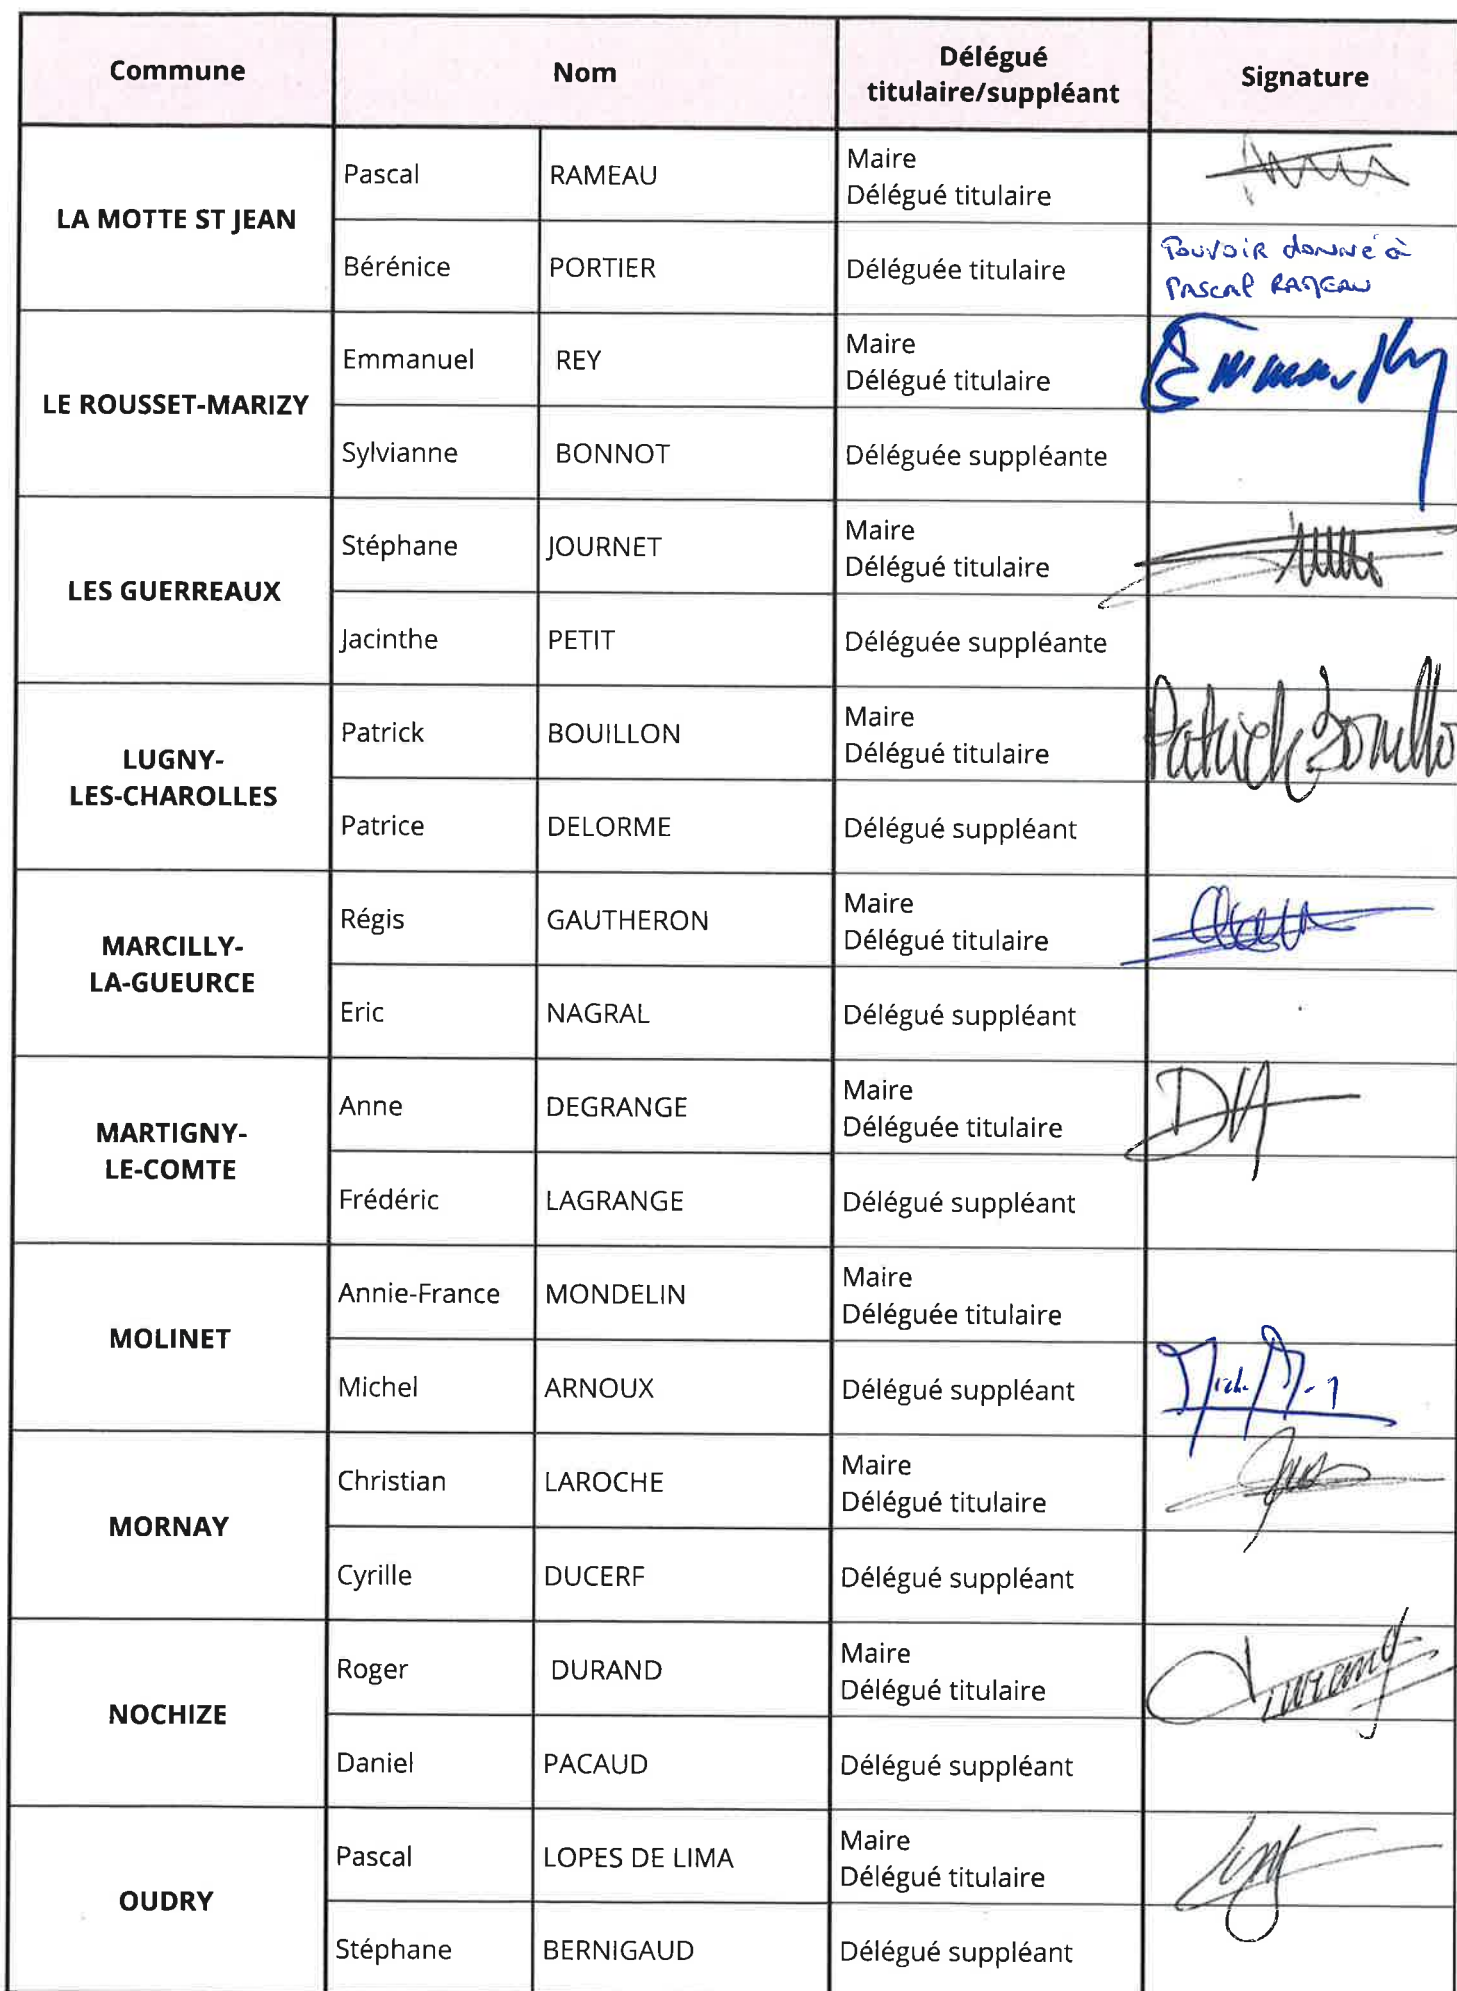 Commune
Nom
Délégué
titulaire/suppléant
Signature
LA MOTTE ST JEAN
Pascal
RAMEAU
Maire
Délégué titulaire
Bérénice
PORTIER
Déléguée titulaire
Pouvoir donné à
Pascal RAMEAU
LE ROUSSET-MARIZY
Emmanuel
REY
Maire
Délégué titulaire
Sylvianne
BONNOT
Déléguée suppléante
LES GUERREAUX
Stéphane
JOURNET
Maire
Délégué titulaire
Jacinthe
PETIT
Déléguée suppléante
LUGNY-
LES-CHAROLLES
Patrick
BOUILLON
Maire
Délégué titulaire
Patrick Bouillo
Patrice
DELORME
Délégué suppléant
MARCILLY-
LA-GUEURCE
Régis
GAUTHERON
Maire
Délégué titulaire
Eric
NAGRAL
Délégué suppléant
MARTIGNY-
LE-COMTE
Anne
DEGRANGE
Maire
Déléguée titulaire
DA
Frédéric
LAGRANGE
Délégué suppléant
MOLINET
Annie-France
MONDELIN
Maire
Déléguée titulaire
Michel
ARNOUX
Délégué suppléant
MORNAY
Christian
LAROCHE
Maire
Délégué titulaire
Cyrille
DUCERF
Délégué suppléant
NOCHIZE
Roger
DURAND
Maire
Délégué titulaire
Daniel
PACAUD
Délégué suppléant
OUDRY
Pascal
LOPES DE LIMA
Maire
Délégué titulaire
Stéphane
BERNIGAUD
Délégué suppléant